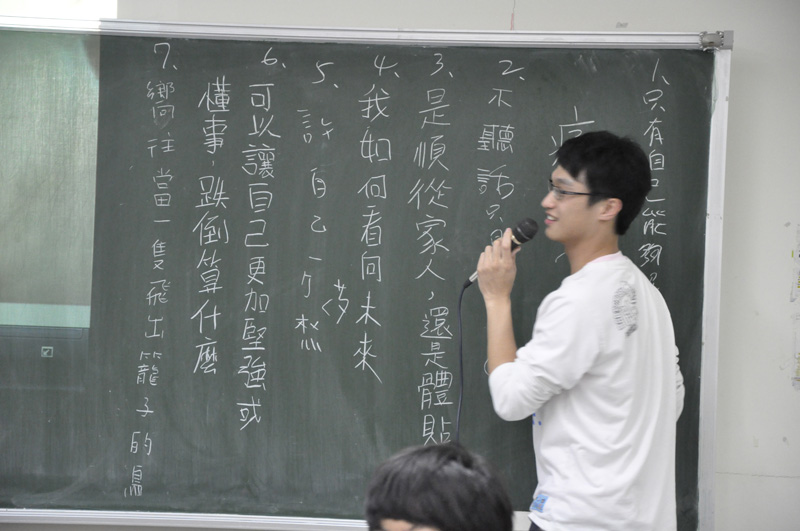 1、只有自己能夠
2、不聽話只
3、是順從家人，還是體貼
4、我如何看向未來
5、許自己一個想夢
6、可以讓自己更加堅強或
懂事，跌倒算什麼
7、嚮往當一隻飛出籠子的鳥